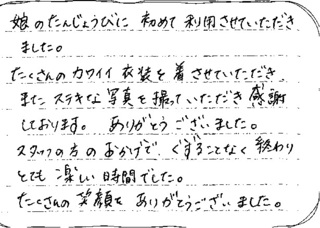 娘のたんじょうびに 初めて利用させていただき
ました。
たくさんのカワイイ衣装を着させていただき、
また ステキな写真を撮っていただき感謝
しております。ありがとうございました。
スタッフの方のおかげで、ぐずることなく終わり
とても楽しい時間でした。
たくさんの笑顔を ありがとうございました。